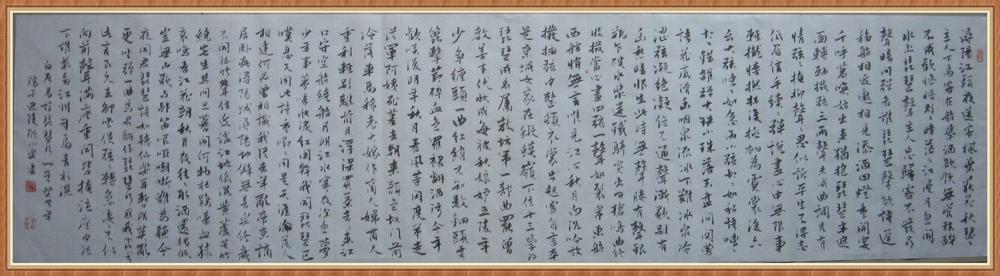 潯陽江頭夜送客楓葉荻花秋瑟瑟
主人下馬客在船舉酒欲飲無管弦醉
不成歡慘將別別時茫茫江浸月忽聞
水上琵琶聲主人忘歸客不發尋
聲暗問彈者誰琵琶聲停欲語遲
移船相近邀相見添酒回燈重開宴
千呼萬喚始出來猶抱琵琶半遮
面轉軸撥弦三兩聲未成曲調先有
情弦弦掩抑聲聲思似訴平生不得志
低眉信手續續彈說盡心中無限事
輕攏慢撚抹復挑初為霓裳後六
幺大弦嘈嘈如急雨小弦切切如私語嘈嘈
切切錯雜彈大珠小珠落玉盤間關鶯
語花底滑幽咽泉流冰下難冰泉冷
澀弦凝絕凝絕不通聲漸歇別有
幽愁暗恨生此時無聲勝有聲銀
瓶乍破水漿迸鐵騎突出刀槍鳴曲終
收撥當心畫四弦一聲如裂帛東船
西舫悄無言唯見江心秋月白沉吟放
撥插弦中整頓衣裳起斂容自言本
是京城女家在蝦蟆陵下住十三學得
琵琶成名屬教坊第一部曲罷曾
教善才伏妝成每被秋娘妒五陵年
少爭纏頭一曲紅綃不知數鈿頭雲
篦擊節碎血色羅裙翻酒污今年
歡笑復明年秋月春風等閒度弟走
從軍阿姨死暮去朝來顏色故門前
冷落車馬稀老大嫁作商人婦商人
重利輕別離前月浮梁買茶去去來江
口守空船繞船月明江水寒夜深忽夢
少年事夢啼妝淚紅闌干我聞琵琶已
嘆息又聞此語重唧唧同是天涯淪落人
相逢何必曾相識我從去年辭帝京謫
居臥病潯陽城潯陽地僻無音樂終歲
不聞絲竹聲住近湓江地低濕黃蘆苦竹
繞宅生其間旦暮聞何物杜鵑啼血猿
哀鳴春江花朝秋月夜往往取酒還獨傾
豈無山歌與村笛嘔啞嘲哳難為聽今
夜聞君琵琶語如聽仙樂耳暫明莫辭
更坐彈一曲為君翻作琵琶行感我
此言良久立卻坐促弦弦轉急淒淒不似
向前聲滿座重聞皆掩泣座中泣
下誰最多江州司馬青衫濕
白居易詩琵琶行